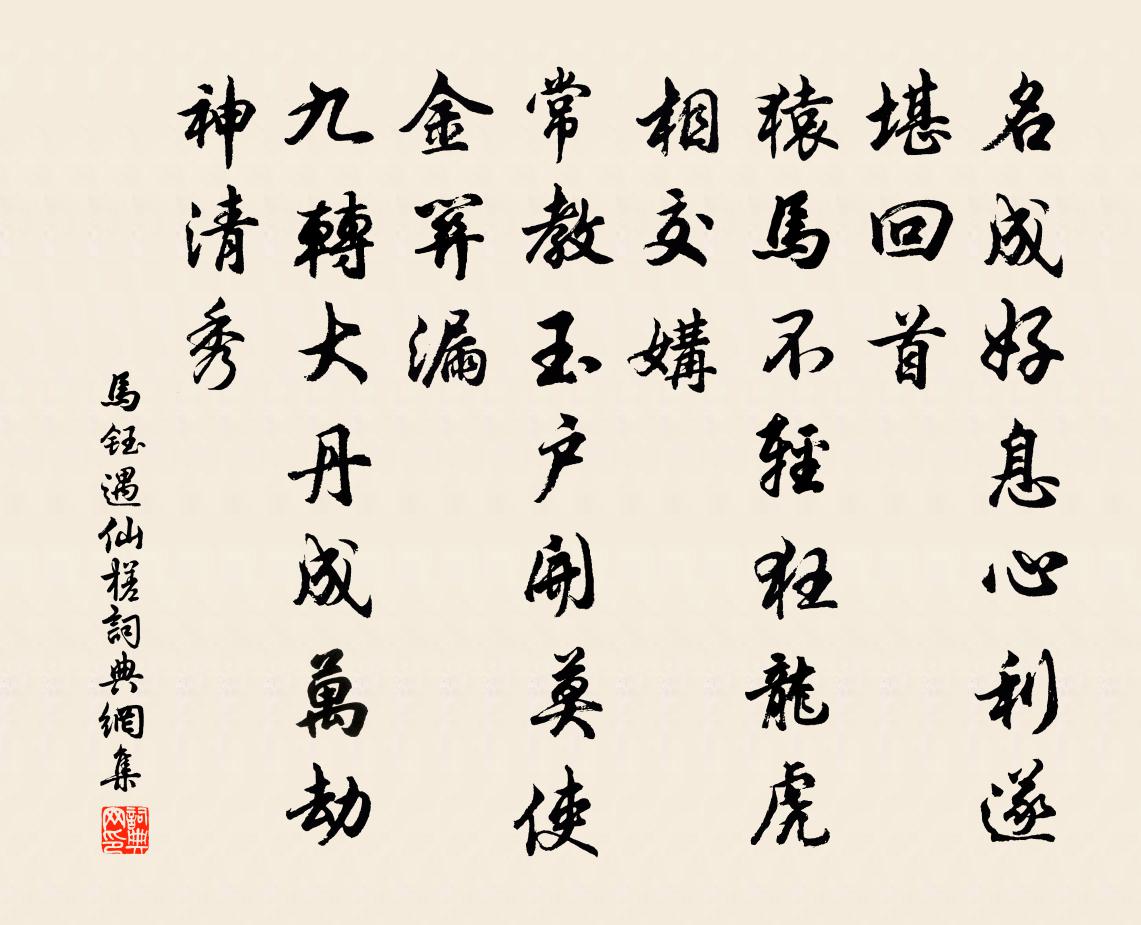 名成好息心利遂
堪回首
猿馬不輕狂龍虎
相交媾
常教玉户開莫使
金關漏
九轉大丹成萬劫
神清秀
馬鈺遇仙槎詞典網集
詞典网印